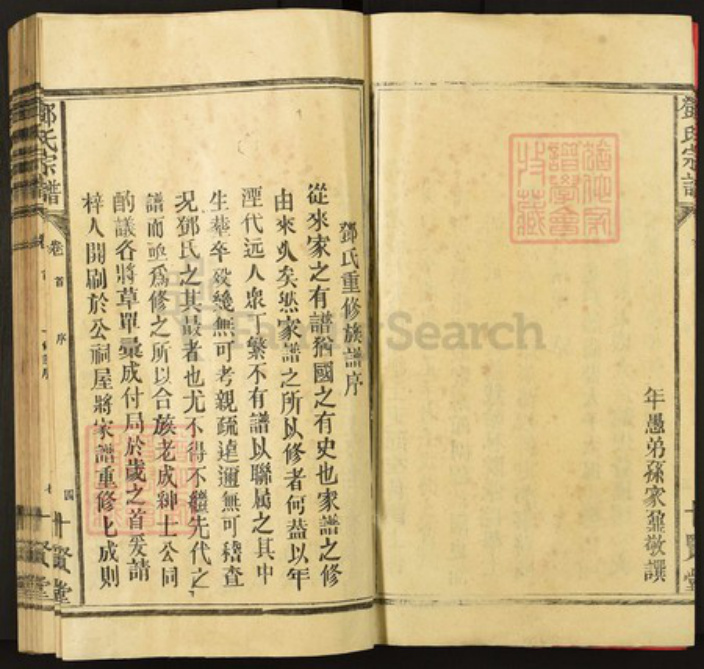 鄧氏宗譜
年愚弟孫家鼐敬譔
賢堂
鄧氏重修族譜序
從來家之有譜猶國之有史也家譜之修
由來久矣然家譜之所以修者何葢以年
湮代远人衆丁繁不有譜以聯属之其中
生塟卒殁幾無可考親疏逺邇無可稽查
况鄧氏之其最者也尤不得不繼先代之
譜而亟爲修之所以合族老成紳士公同
酌議各將草單彙成付局於歲之首爰請
梓人開刷於公祠屋將家譜重修匕成則
鄧氏宗譜
卷首
序
四
十賢堂
FamilySearch